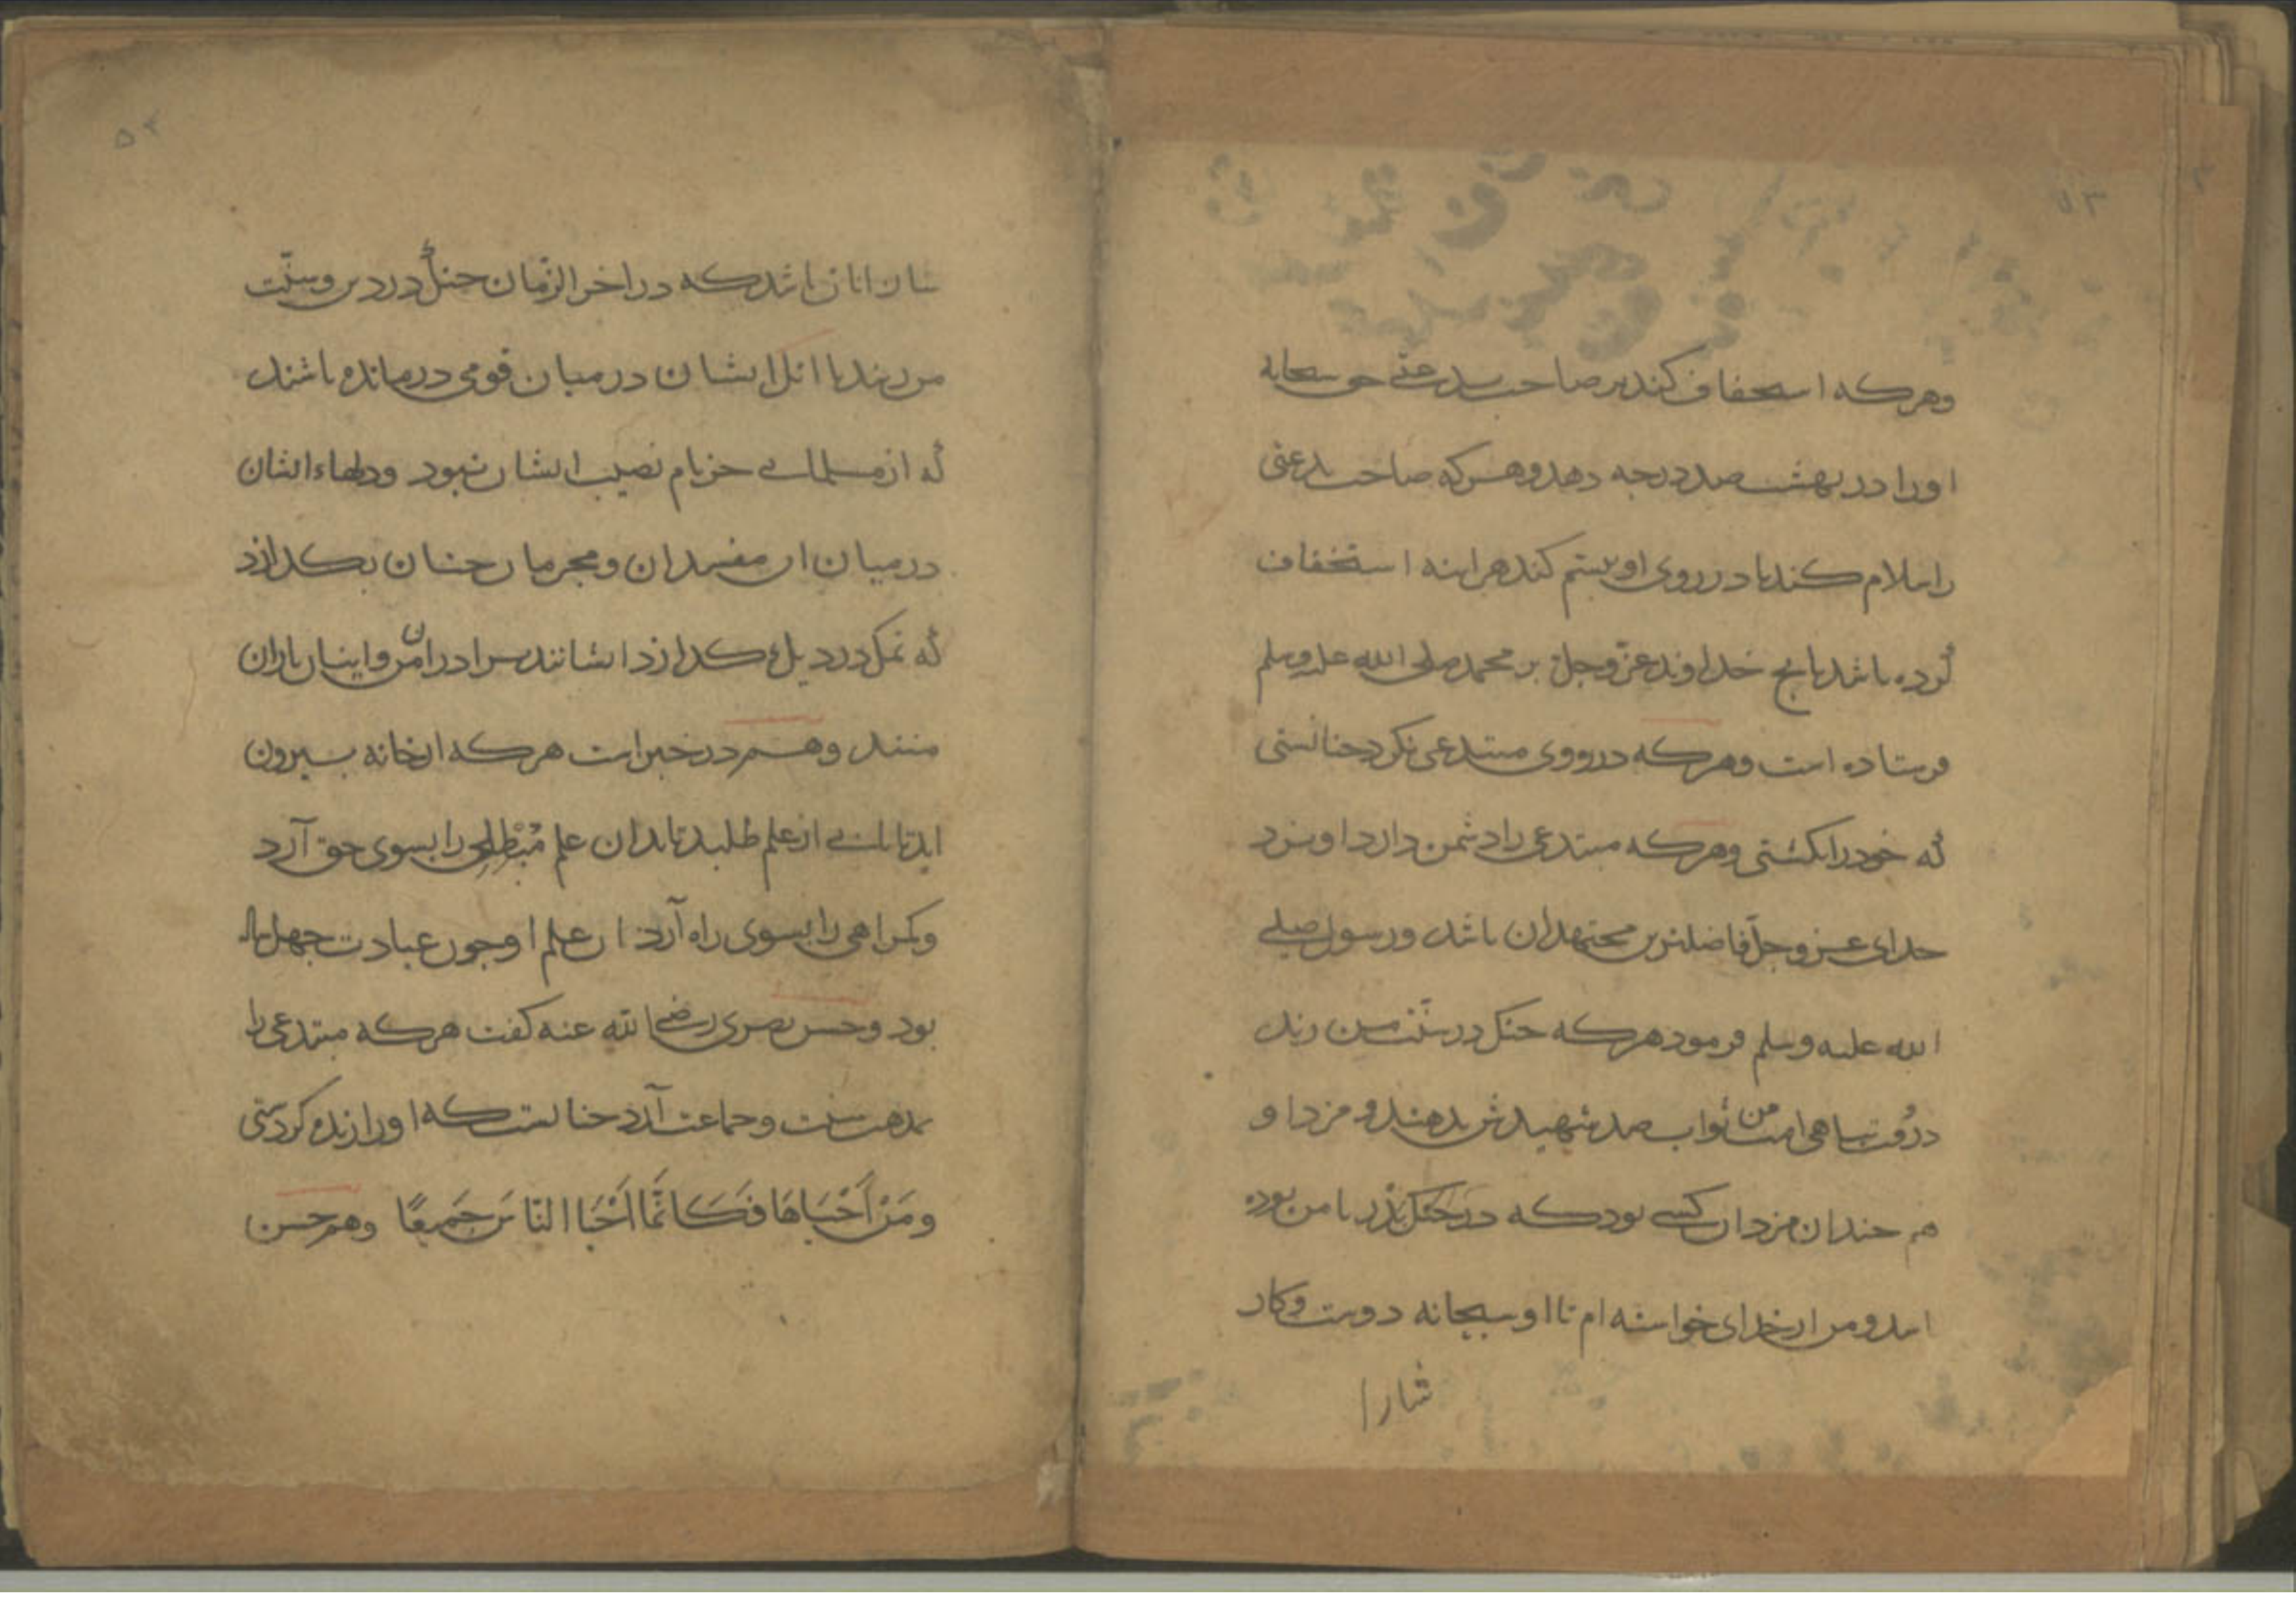 وهركه استخفاف كند بر صاحب بدعتی حق سبحانه
اورا در بهشت صد درجه دهد وهركه صاحب بدعتی
را سلام كند يا در روی او تبسّم كند هراينه استخفاف
كرده باشد بانچ خداوند عزّ وجلّ بر محمد صلی الله علیه وسلم
فرستاده است وهركه در روی مبتدعی نكرد جنانستی
كه خودرا بكشتی وهركه مبتدعی را دشمن دارد او نزد
خدای عزّ وجلّ فاضلترین مجتهدان باشد ورسول صلی
الله علیه وسلم فرمود هركه جنك در سنّت من زند
در وقت تباهی امت من ثواب صد شهیدش بدهند و مزد او
هم جندان مزد ان كسی بود كه در جنك بدر با من بوده
اند و من از خدای خواسته ام تا او سبحانه دوست وكار
شارا
شان انان باشد كه در اخر الزّمان جنك در دین وسنّت
من زند با انك ایشان در میان قومی درمانده باشند
كه از مسلمانی جز نام نصیب ایشان نبود ودلهاء ایشان
در میان ان مفسدان ومجرمان جنان بكدازد
كه نمك در ديك كدازد ایشانند برادران من واینان یاران
منند وهم در خبر است هركه از خانه بیرون
اید تا بابی از علم طلبد تا بدان علم مُبْطِلی را بسوی حق آرد
وكمراهی را بسوی راه آرد ان علم او جون عبادت جهل سال
بود وحسن بصری رضی الله عنه كفت هركه مبتدعی را
بمذهب سنت وجماعت آرد جنانست كه اورا زنده كردستی
ومَنْ اَحْیَاهَا فَكَاَنَّمَا اَحْیَا النّاسَ جَمیعًا وهم حسن